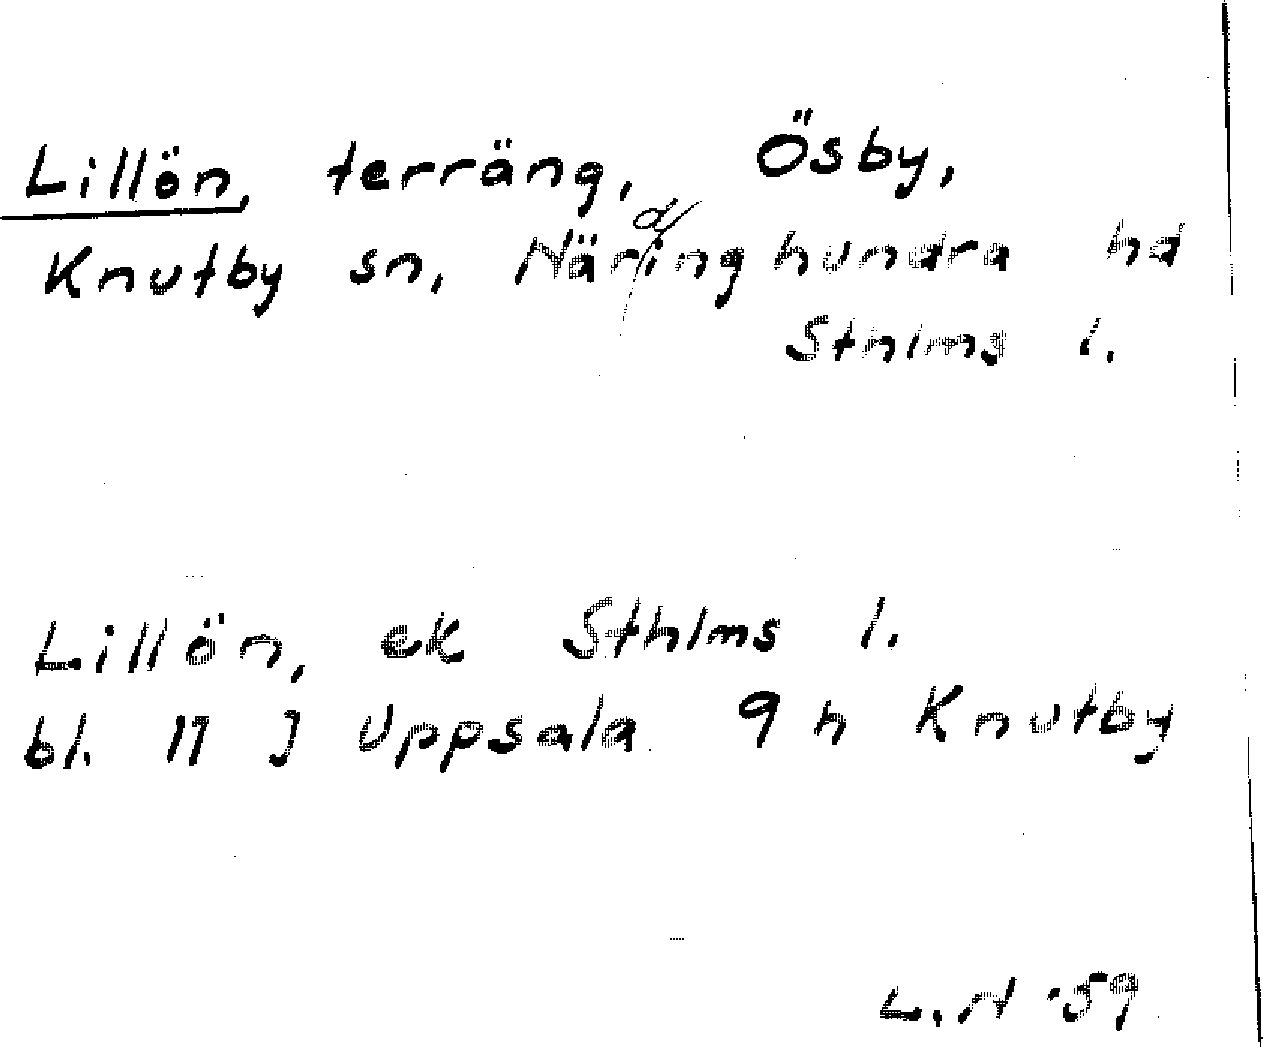 Lillön, terräng, Ösby,
Knutby sn, Närdinghundra hd
Sthlms l.
Lillön, ek Sthlms l.
bl. 11 J Uppsala 9 h Knutby
L. N '59